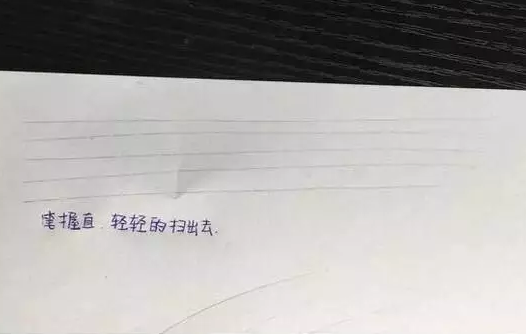 掌握直.轻轻的扫出去.